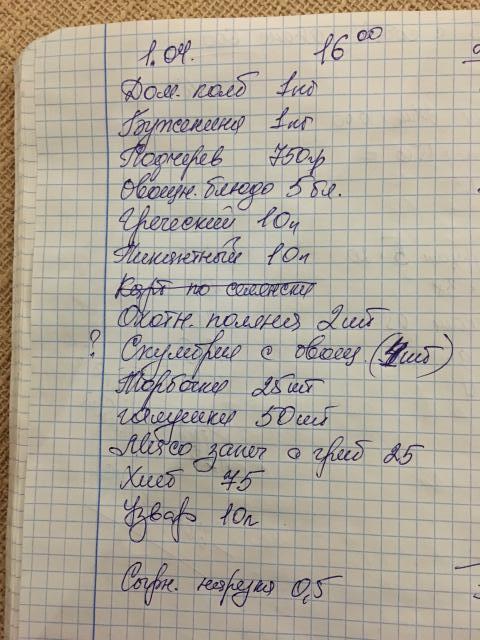 1.04. 16⁰⁰
Дом. колб 1кг
Буженина 1кг
Подчерев 750гр
Овощн. блюдо 5бл.
Греческий 10п
Пикантный 10п
Карт по селянски
Охотн. поляна 2шт
? Скумбрия с овощ. (4шт)
Торбочки 25шт
галушки 50шт
Мясо запеч с гриб 25
Хлеб 75
Узвар 10л
Сырн. нарезка 0,5